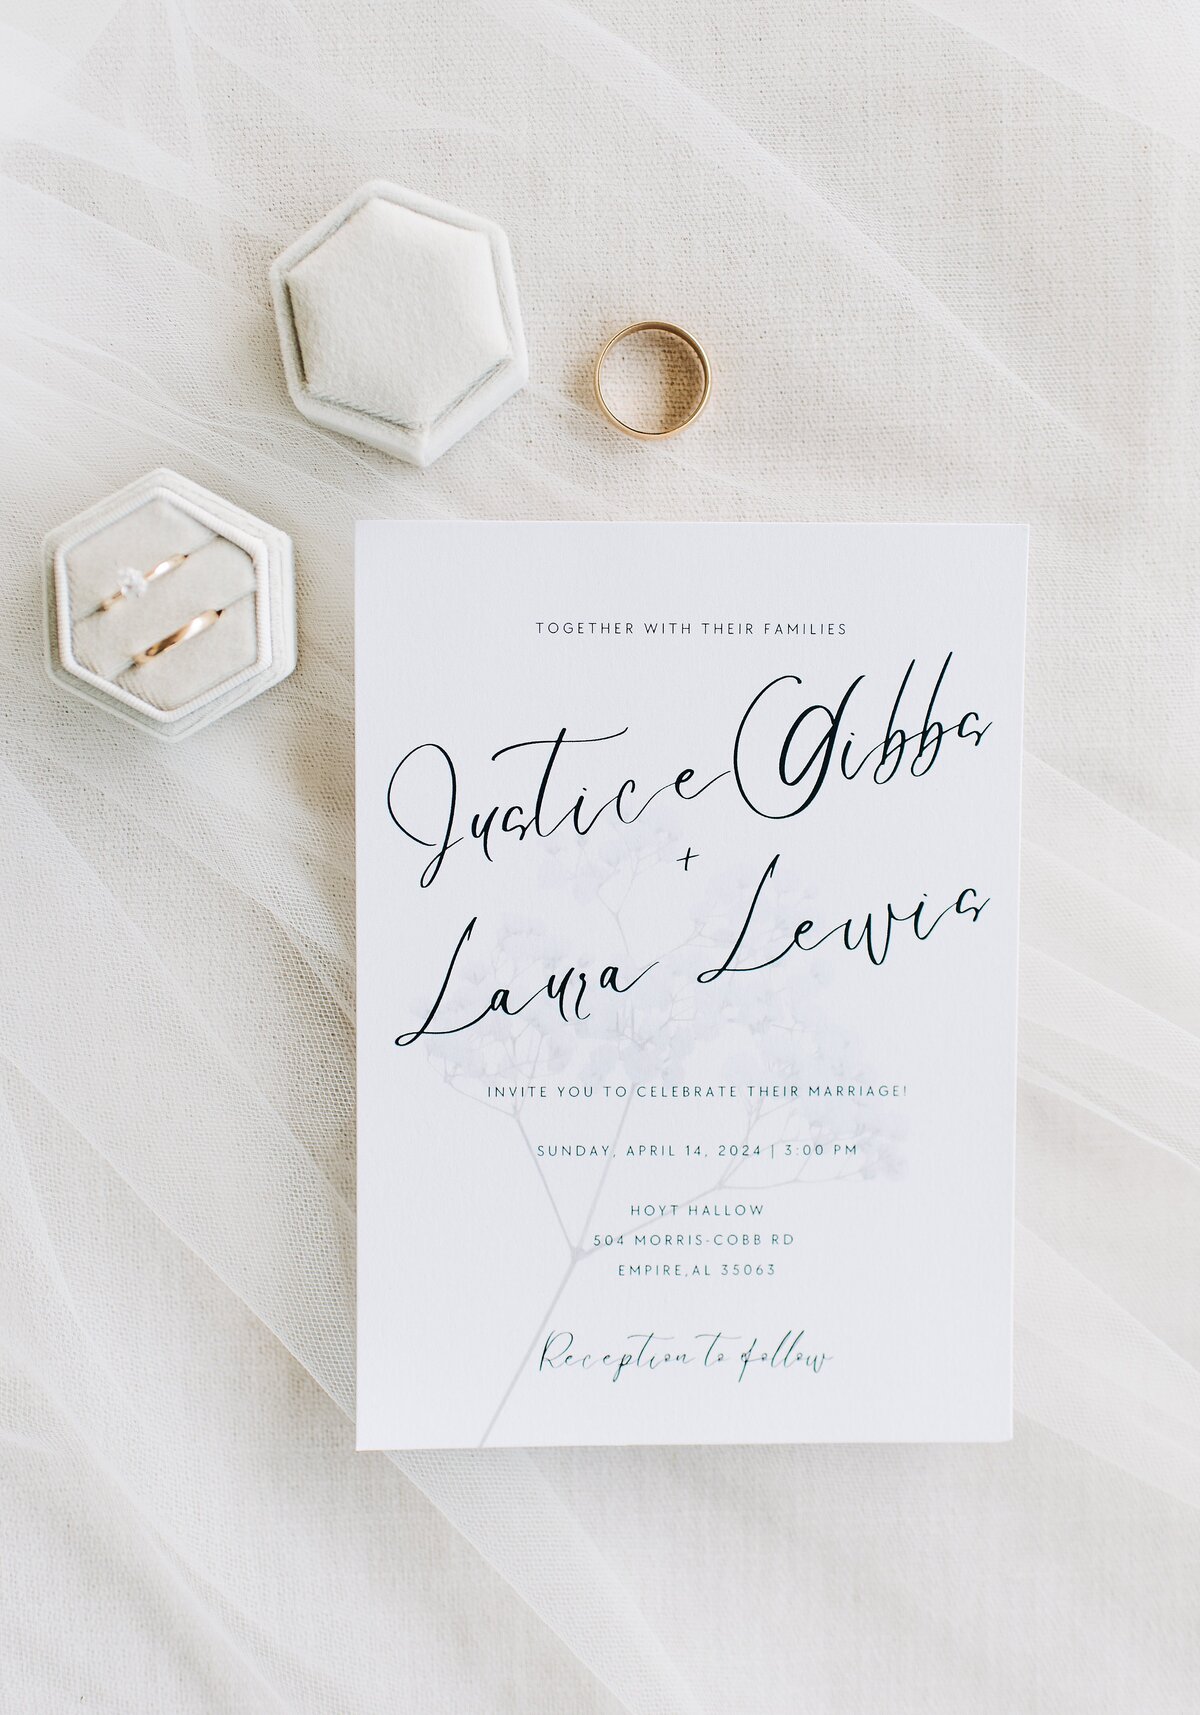 TOGETHER WITH THEIR FAMILIES
Justice Gibbs
+
Laura Lewis
INVITE YOU TO CELEBRATE THEIR MARRIAGE!
SUNDAY, APRIL 14, 2024 | 3:00 PM
HOYT HALLOW
504 MORRIS-COBB RD
EMPIRE,AL 35063
Reception to follow